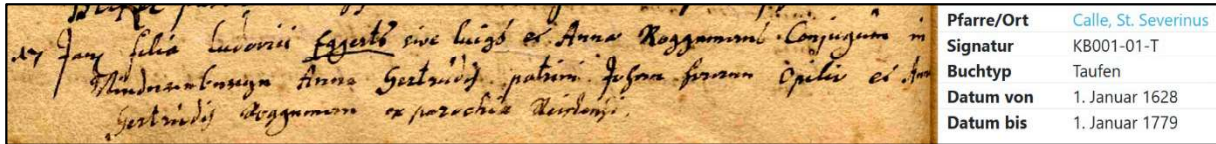 17 Jan filia ludovici Eggerts sive luigs et Anna Roggemans Conjugum in
Anna Gertrudis patrini Johan Opilio et Ann
Gertrudis Roggemans ex parochia
Pfarre/Ort Calle, St. Severinus
Signatur KB001-01-T
Buchtyp Taufen
Datum von 1. Januar 1628
Datum bis 1. Januar 1779